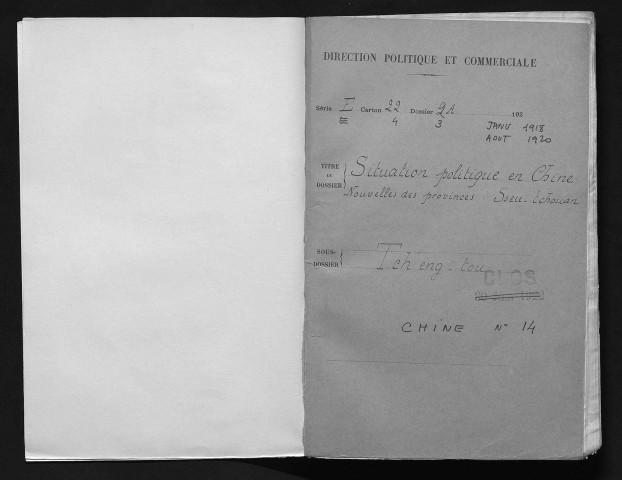 DIRECTION POLITIQUE ET COMMERCIALE
Série E Carton 22 Dossier 2A 192
4 3 JANV 1918
AOUT 1920
TITRE DU DOSSIER Situation politique en Chine
Nouvelles des provinces Sseu-Tchouan
SOUS-DOSSIER Tcheng-tou
CLOS
CHINE N° 14